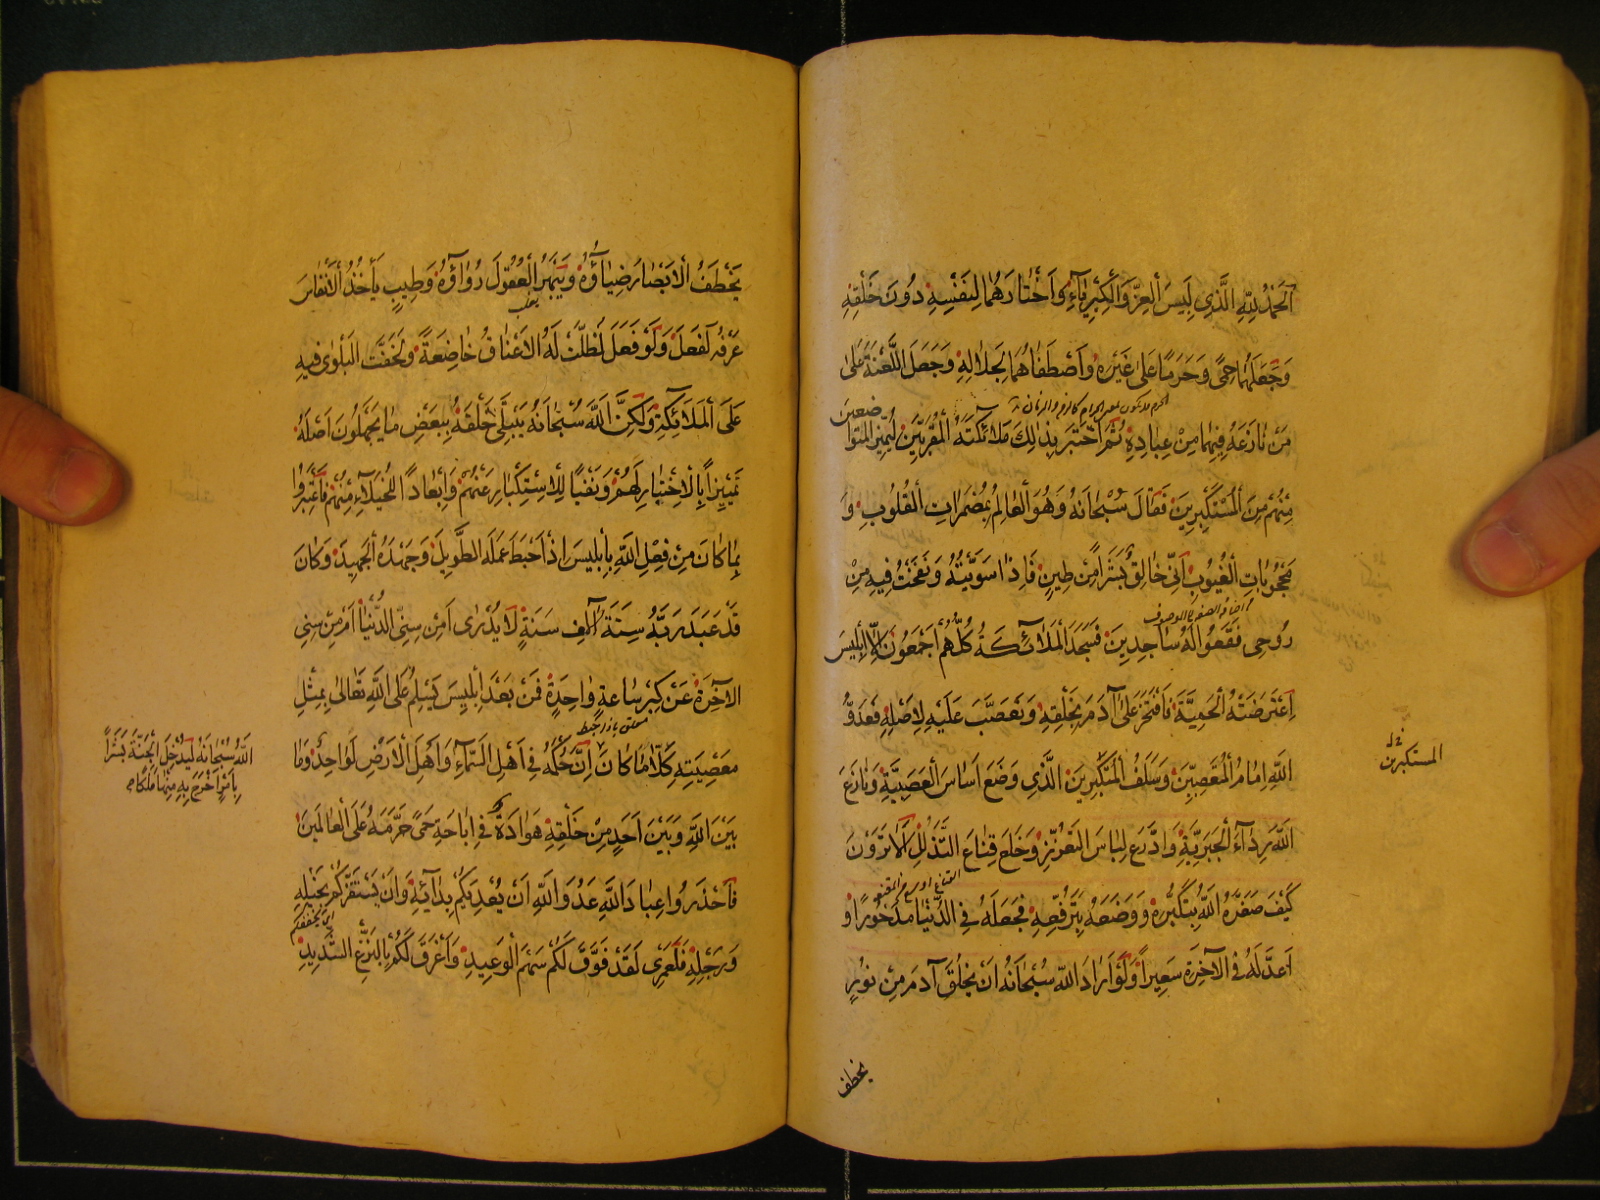 اَلْحَمْدُ لِلّٰهِ الَّذِي لَبِسَ الْعِزَّ وَالْكِبْرِيَآءَ وَاخْتَارَهُمَا لِنَفْسِهِ دُونَ خَلْقِهِ
وَجَعَلَهُمَا حِمًى وَحَرَمًا عَلٰى غَيْرِهِ وَاصْطَفَاهُمَا لِجَلَالِهِ وَجَعَلَ اللَّعْنَةَ عَلٰى
مَنْ نَازَعَهُ فِيهِمَا مِنْ عِبَادِهِ ثُمَّ اخْتَبَرَ بِذٰلِكَ مَلَائِكَتَهُ الْمُقَرَّبِينَ لِيَمِيزَ الْمُتَوَاضِعِينَ
مِنْهُمْ مِنَ الْمُسْتَكْبِرِينَ فَقَالَ سُبْحَانَهُ وَهُوَ الْعَالِمُ بِمُضْمَرَاتِ الْقُلُوبِ وَ
مَحْجُوبَاتِ الْغُيُوبِ اِنِّي خَالِقٌ بَشَرًا مِنْ طِينٍ فَاِذَا سَوَّيْتُهُ وَنَفَخْتُ فِيهِ مِنْ
رُوحِي فَقَعُوا لَهُ سَاجِدِينَ فَسَجَدَ الْمَلَآئِكَةُ كُلُّهُمْ اَجْمَعُونَ اِلَّا اِبْلِيسَ
اِعْتَرَضَتْهُ الْحَمِيَّةُ فَافْتَخَرَ عَلٰى آدَمَ بِخَلْقِهِ وَتَعَصَّبَ عَلَيْهِ لِاَصْلِهِ فَعَدُوُّ
اللّٰهِ اِمَامُ الْمُتَعَصِّبِينَ وَسَلَفُ الْمُتَكَبِّرِينَ الَّذِي وَضَعَ اَسَاسَ الْعَصَبِيَّةِ وَنَازَعَ
المستكبرين
اللّٰهَ رِدَآءَ الْجَبَرِيَّةِ وَادَّرَعَ لِبَاسَ التَّعَزُّزِ وَخَلَعَ قِنَاعَ التَّذَلُّلِ اَلَا تَرَوْنَ
كَيْفَ صَغَّرَهُ اللّٰهُ بِتَكَبُّرِهِ وَوَضَعَهُ بِتَرَفُّعِهِ فَجَعَلَهُ فِي الدُّنْيَا مَدْحُورًا وَ
اَعَدَّ لَهُ فِي الْآخِرَةِ سَعِيرًا وَلَوْ اَرَادَ اللّٰهُ سُبْحَانَهُ اَنْ يَخْلُقَ آدَمَ مِنْ نُورٍ
يخطف
يَخْطَفُ الْاَبْصَارَ ضِيَاؤُهُ وَيَبْهَرُ الْعُقُولَ رُوَاؤُهُ وَطِيبٍ يَأْخُذُ الْاَنْفَاسَ
عَرْفُهُ لَفَعَلَ وَلَوْ فَعَلَ لَظَلَّتْ لَهُ الْاَعْنَاقُ خَاضِعَةً وَلَخَفَّتِ الْبَلْوٰى فِيهِ
عَلَى الْمَلَائِكَةِ وَلٰكِنَّ اللّٰهَ سُبْحَانَهُ يَبْتَلِي خَلْقَهُ بِبَعْضِ مَا يَجْهَلُونَ اَصْلَهُ
تَمْيِيزًا بِالْاِخْتِبَارِ لَهُمْ وَنَفْيًا لِلْاِسْتِكْبَارِ عَنْهُمْ وَاِبْعَادًا لِلْخُيَلَآءِ مِنْهُمْ فَاعْتَبِرُوا
بِمَا كَانَ مِنْ فِعْلِ اللّٰهِ بِاِبْلِيسَ اِذْ اَحْبَطَ عَمَلَهُ الطَّوِيلَ وَجَهْدَهُ الْجَهِيدَ وَكَانَ
قَدْ عَبَدَ رَبَّهُ سِتَّةَ آلَافِ سَنَةٍ لَا يُدْرٰى اَمِنْ سِنِي الدُّنْيَا اَمْ مِنْ سِنِي
الْآخِرَةِ عَنْ كِبْرِ سَاعَةٍ وَاحِدَةٍ فَمَنْ بَعْدَ اِبْلِيسَ يَسْلَمُ عَلَى اللّٰهِ تَعَالٰى بِمِثْلِ
مَعْصِيَتِهِ كَلَّا مَا كَانَ اِنَّ حُكْمَهُ فِي اَهْلِ السَّمَآءِ وَاَهْلِ الْاَرْضِ لَوَاحِدٌ وَمَا
اللّٰهُ سُبْحَانَهُ لِيُدْخِلَ الْجَنَّةَ بَشَرًا
بِاَمْرٍ اَخْرَجَ بِهِ مِنْهَا مَلَكًا
بَيْنَ اللّٰهِ وَبَيْنَ اَحَدٍ مِنْ خَلْقِهِ هَوَادَةٌ فِي اِبَاحَةِ حِمًى حَرَّمَهُ عَلَى الْعَالَمِينَ
فَاحْذَرُوا عِبَادَ اللّٰهِ عَدُوَّ اللّٰهِ اَنْ يُعْدِيَكُمْ بِدَآئِهِ وَاَنْ يَسْتَفِزَّكُمْ بِخَيْلِهِ
وَرَجِلِهِ فَلَعَمْرِي لَقَدْ فَوَّقَ لَكُمْ سَهْمَ الْوَعِيدِ وَاَغْرَقَ لَكُمْ بِالنَّزْعِ الشَّدِيدِ